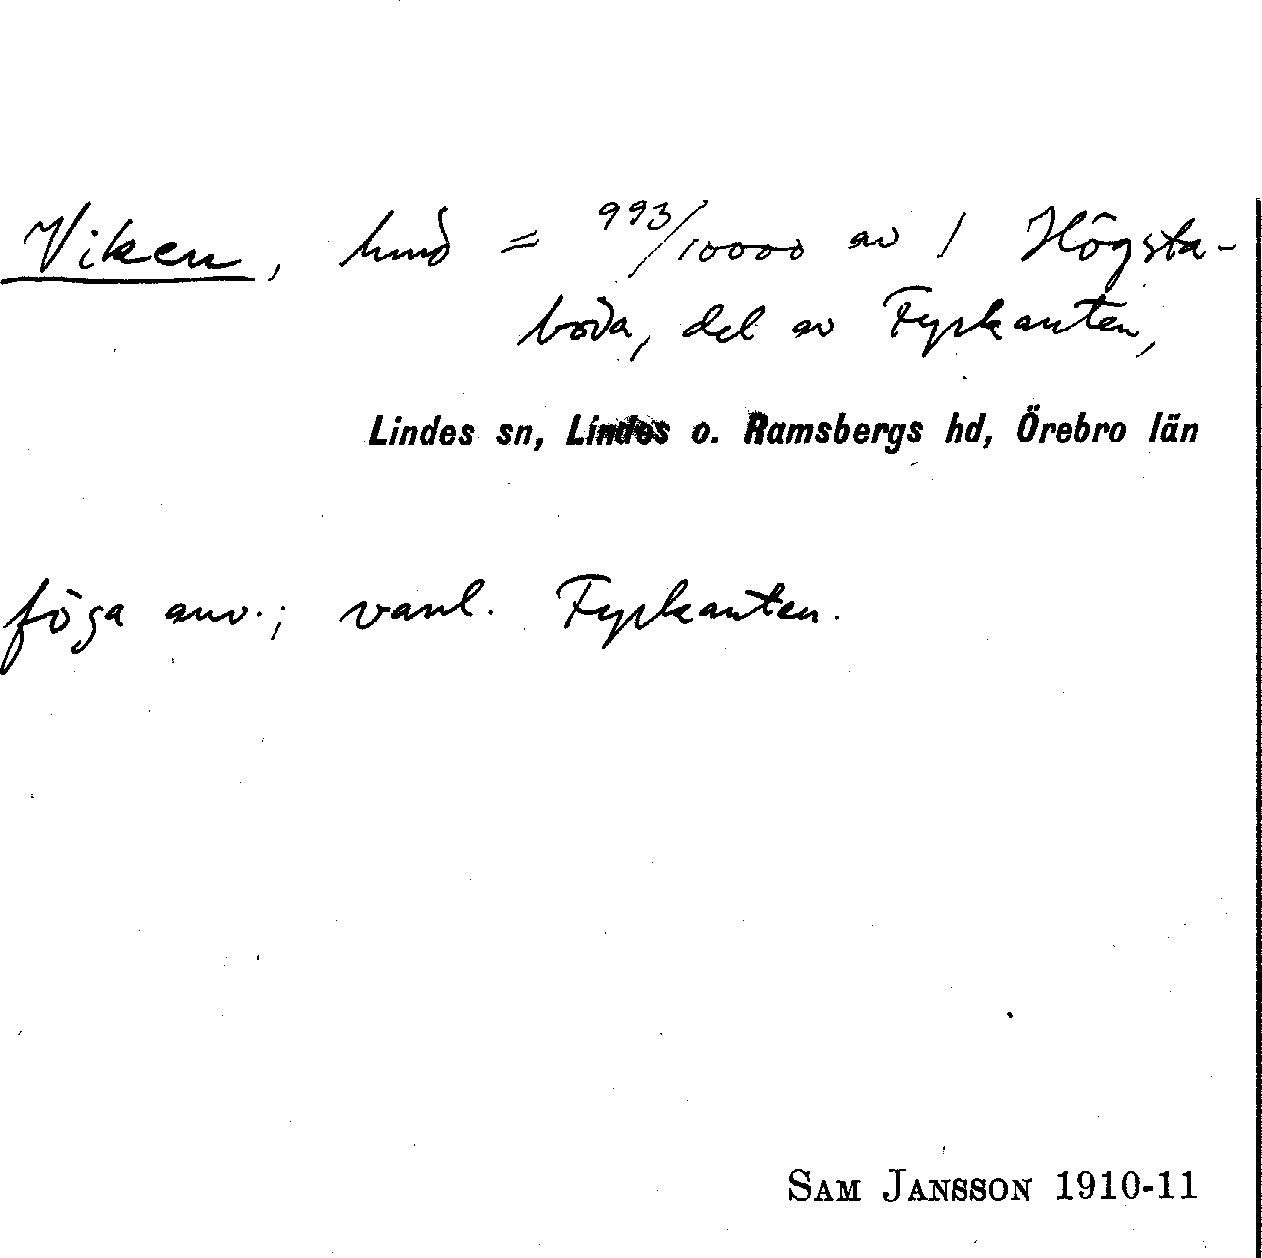 Viken, hmd = 993/10000 av 1 Högsta-
boda, del av Fyrkanten,
Lindes sn, Lindes o. Ramsbergs hd, Örebro län
föga anv.; vanl. Fyrkanten.
SAM JANSSON 1910-11